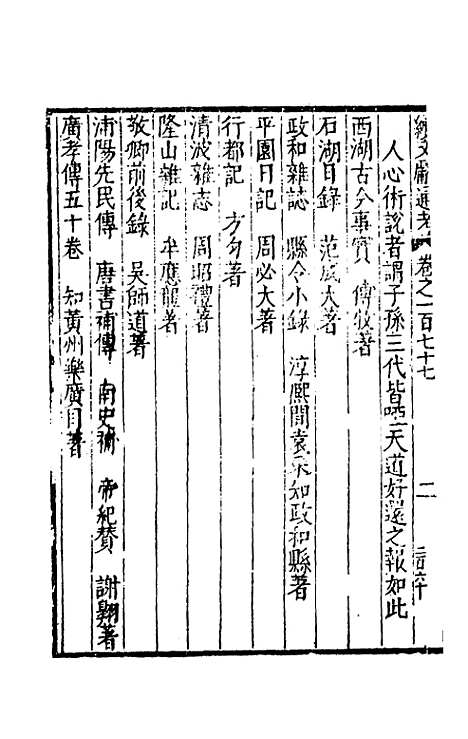 續文獻通考 卷之一百七十七 二 三百六十
人心術說者謂子孫三代皆啞天道好還之報如此
西湖古今事實 傅牧著
石湖日錄 范成大著
政和雜誌 縣令小錄 淳熙間袁采知政和縣著
平園日記 周必大著
行都記 方勺著
清波雜志 周昭禮著
隆山雜記 牟應龍著
敬鄉前後錄 吳師道著
浦陽先民傳 唐書補傳 南史補 帝紀贊 謝翱著
廣孝傳五十卷 知黃州樂廣目著